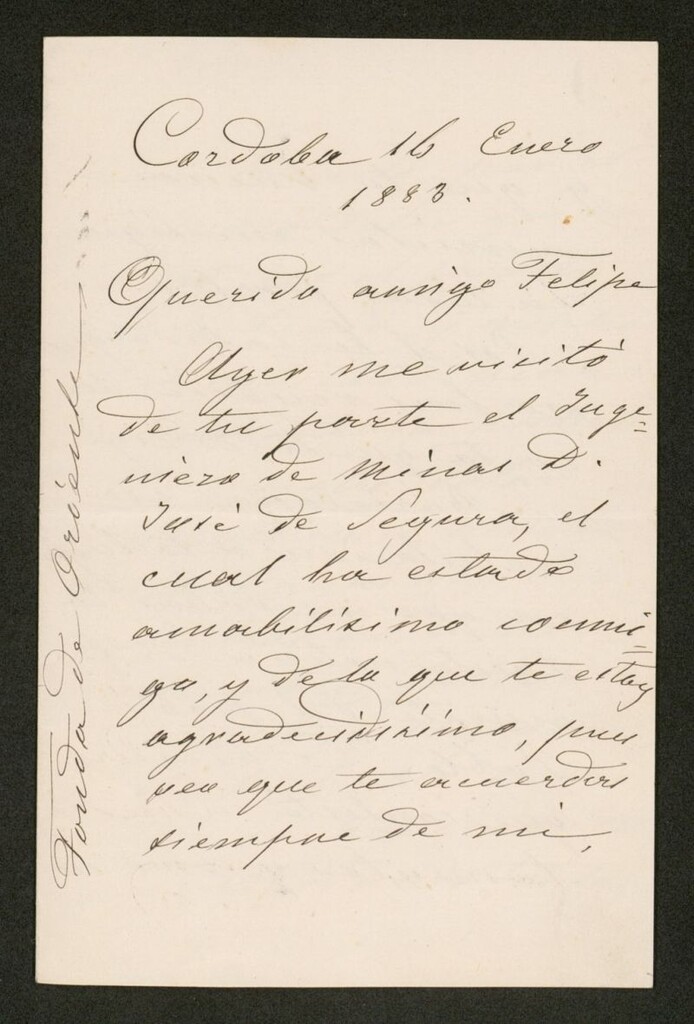 Cordoba 16 Enero
1883.
Querido amigo Felipe
Ayer me visitó
de tu parte el Inge=
niero de Minas D.
José de Segura, el
cual ha estado
amabilisimo conmi=
go, y de lo que te estoy
agradecidisimo, pues
veo que te acuerdas
siempre de mi,
Fonda de Oriente